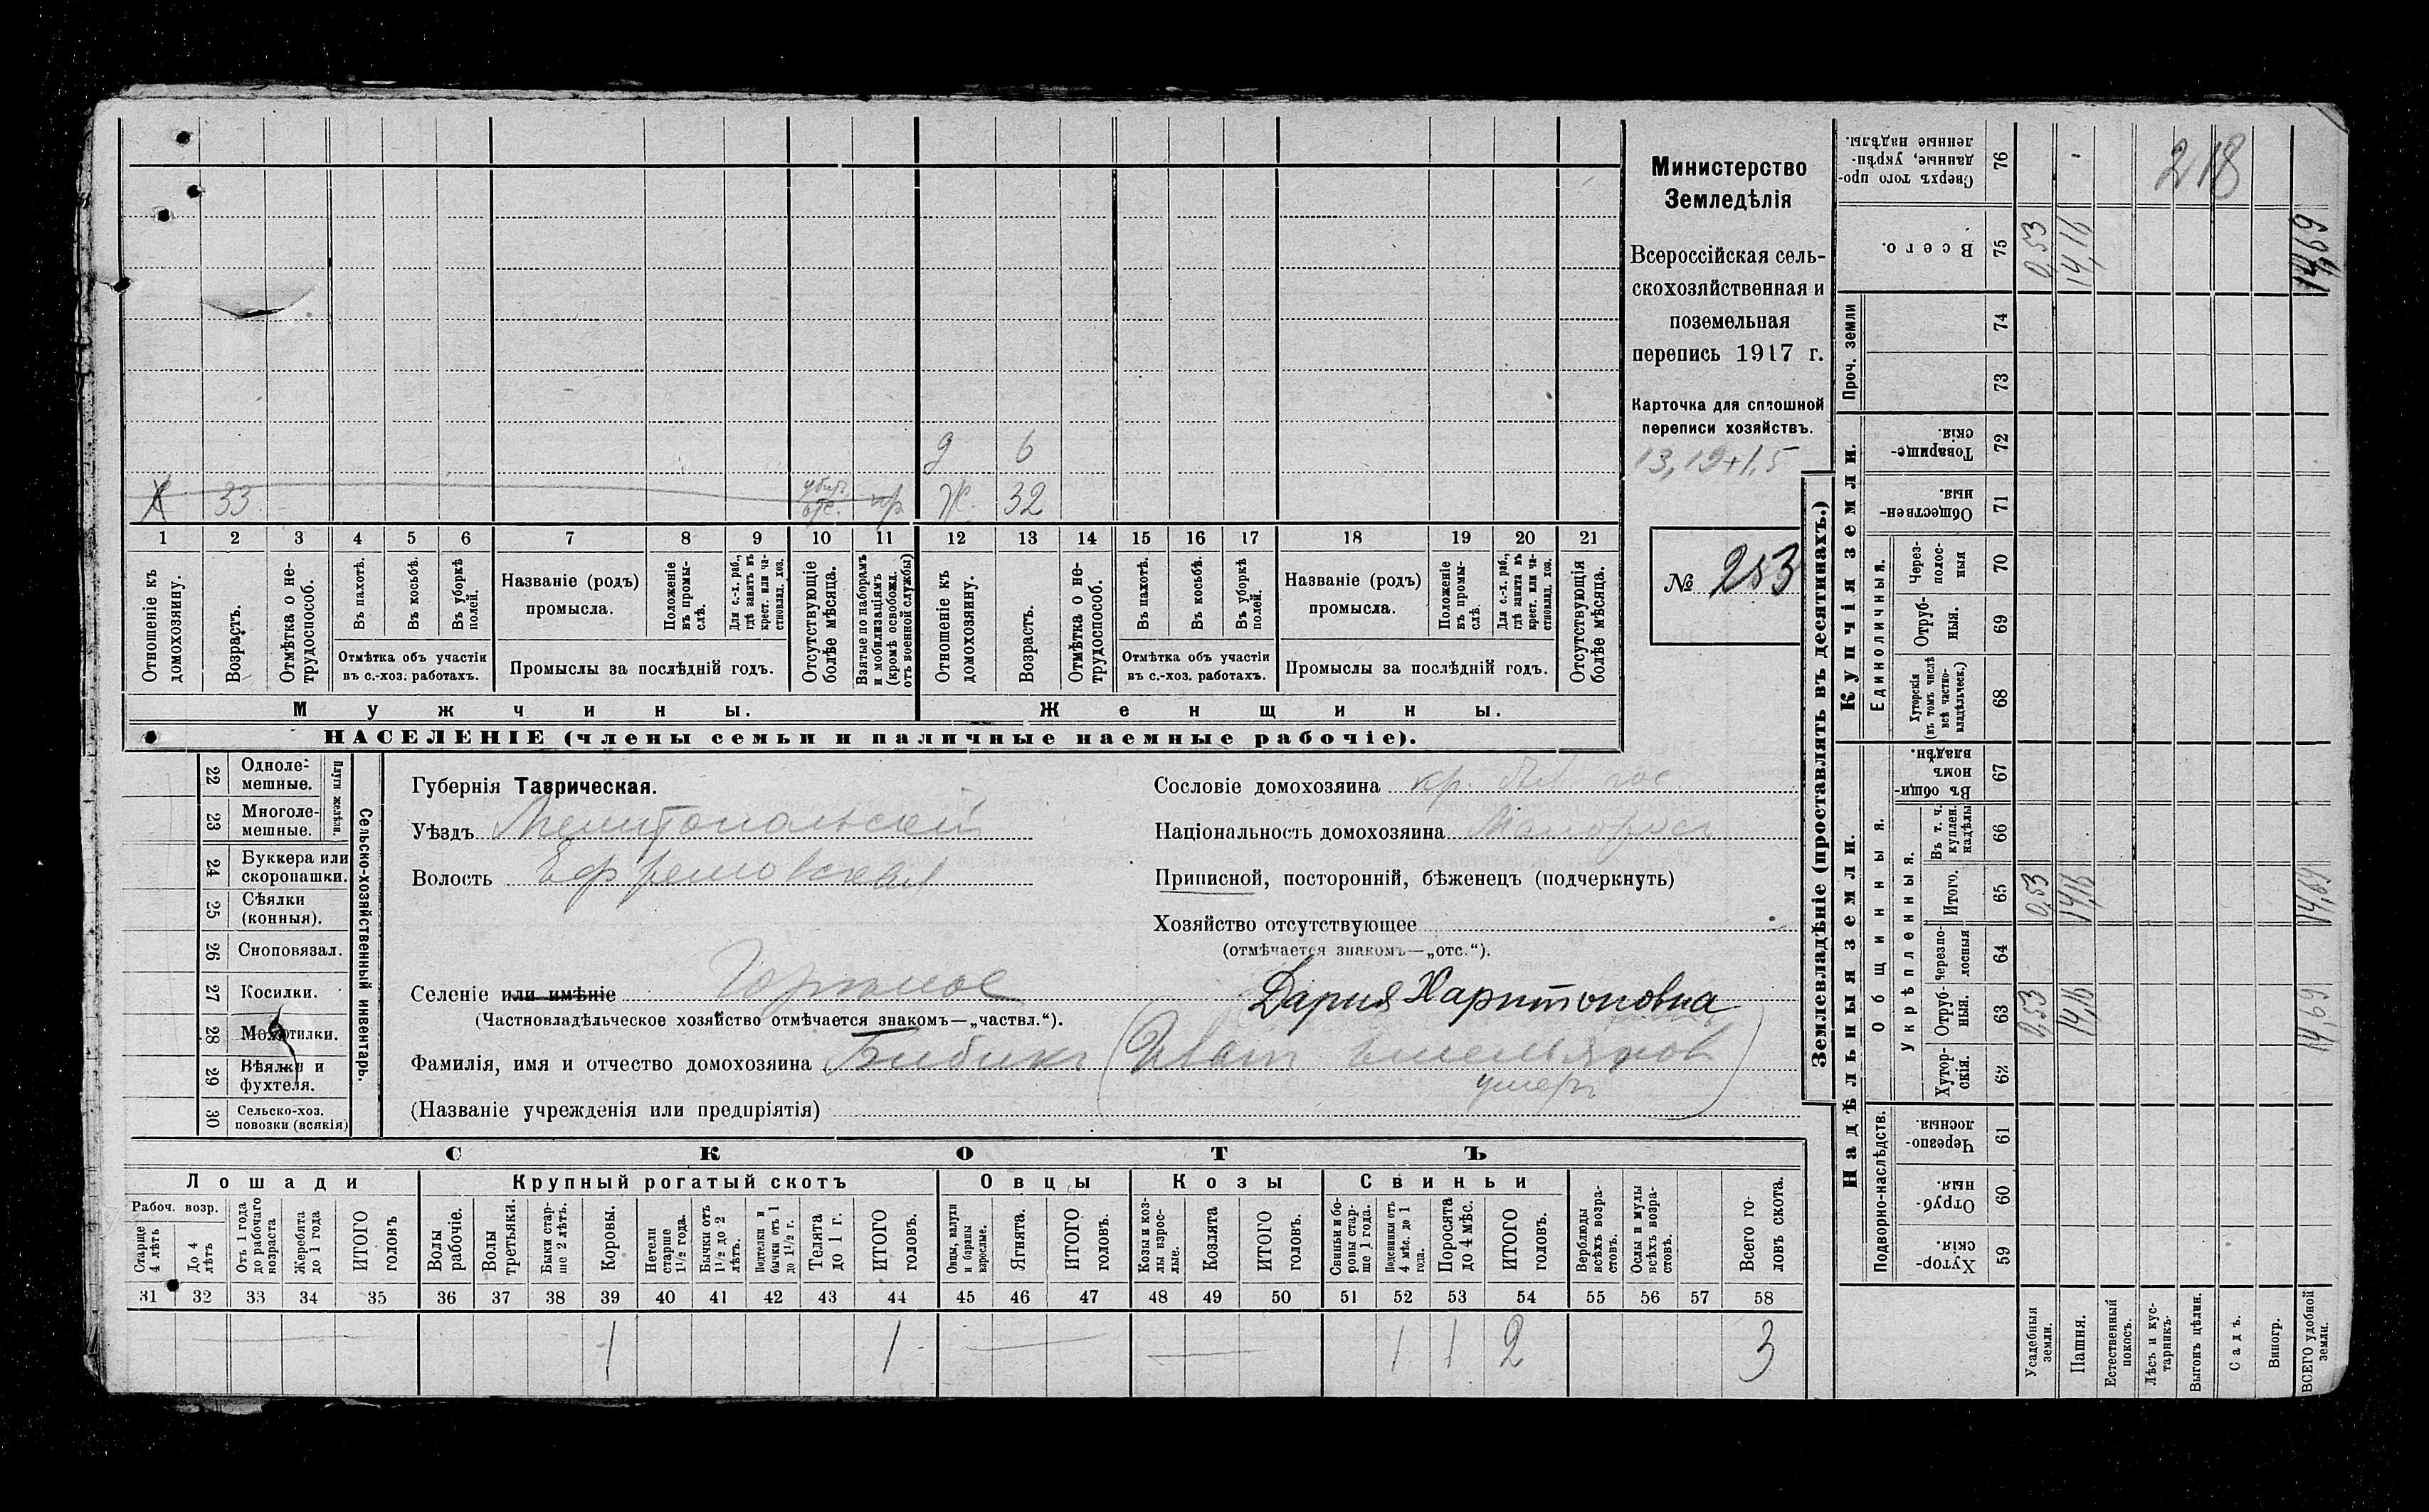 Министерство
Земледѣлія
Всероссійская сель-
скохозяйственная и
поземельная
перепись 1917 г.
Карточка для сплошной
переписи хозяйствъ.
13,19+1,5
№ 253
д 6
Х 33 убит отс. пр Ж. 32
1 2 3 4 5 6 7 8 9 10 11 12 13 14 15 16 17 18 19 20 21
Отношеніе къ домохозяину.
Возрастъ.
Отмѣтка о не-трудоспособ.
Въ пахотѣ.
Въ косьбѣ.
Въ уборкѣ полей.
Отмѣтка объ участіи
въ с.-хоз. работахъ.
Названіе (родъ)
промысла.
Положеніе въ промы-слѣ.
Для с.-х. раб., гдѣ занятъ въ крест. или ча-стновлад. хоз.
Промыслы за послѣдній годъ.
Отсутствующіе болѣе мѣсяца.
Взятые по наборамъ и мобилизаціямъ (кромѣ освобожд. отъ военной службы)
Отношеніе къ домохозяину.
Возрастъ.
Отмѣтка о не-трудоспособ.
Въ пахотѣ.
Въ косьбѣ.
Въ уборкѣ полей.
Отмѣтка объ участіи
въ с.-хоз. работахъ.
Названіе (родъ)
промысла.
Положеніе въ промы-слѣ.
Для с.-х. раб., гдѣ занята въ крест. или ча-стновлад. хоз.
Промыслы за послѣдній годъ.
Отсутствующія болѣе мѣсяца.
Мужчины.
Женщины.
НАСЕЛЕНІЕ (члены семьи и наличные наемные рабочіе).
22 Одноле-мешные.
23 Многоле-мешные.
Плуги желѣзн.
24 Буккера или скоропашки.
25 Сѣялки (конныя).
26 Сноповязал.
27 Косилки.
28 Молотилки.
29 Вѣялки и фухтеля.
30 Сельско-хоз. повозки (всякія)
Сельско-хозяйственный инвентарь.
Губернія Таврическая.
Уѣздъ Мелитопольскій
Волость Ефремовская
Селеніе или имѣніе Горькое
(Частновладѣльческое хозяйство отмѣчается знакомъ—„частвл.“).
Сословіе домохозяина кр. быв гос
Національность домохозяина Малоросъ
Приписной, посторонній, бѣженецъ (подчеркнуть)
Хозяйство отсутствующее
(отмѣчается знакомъ—„отс.“).
Дария Харитоновна
Фамилія, имя и отчество домохозяина Бибикъ (Иванъ Емельянов
умеръ)
(Названіе учрежденія или предпріятія)
СКОТЪ
Лошади Крупный рогатый скотъ Овцы Козы Свиньи
Рабоч. возр.
Старше 4 лѣтъ
До 4 лѣтъ
Отъ 1 года до рабочаго возраста
Жеребята до 1 года
ИТОГО головъ
Волы рабочіе.
Волы третьяки.
Быки стар-ше 2 лѣтъ.
Коровы.
Нетели старше 1½ года.
Бычки отъ 1½ до 2 лѣтъ.
Подтелки и бычки отъ 1 до 1½ г.
Телята до 1 г.
ИТОГО головъ.
Овцы, валухи и бараны взрослые.
Ягнята.
ИТОГО головъ.
Козы и коз-лы взрос-лые.
Козлята
ИТОГО головъ.
Свиньи и бо-ровы стар-ше 1 года.
Подсвинки отъ 4 мѣс. до 1 года.
Поросята до 4 мѣс.
ИТОГО головъ.
Верблюды всѣхъ возра-стовъ.
Ослы и мулы всѣхъ возра-стовъ.
Всего го-ловъ скота.
31 32 33 34 35 36 37 38 39 40 41 42 43 44 45 46 47 48 49 50 51 52 53 54 55 56 57 58
1 1 1 1 2 3
Землевладѣніе (проставлять въ десятинахъ.)
Надѣльныя земли. Купчія земли. Проч. земли
Подворно-наслѣдств.
Общинныя.
Укрѣпленныя.
Единоличныя.
59 Хутор-скія.
60 Отруб-ныя.
61 Черезпо-лосныя.
62 Хутор-скія.
63 Отруб-ныя.
64 Черезпо-лосныя
65 Итого.
66 Въ т. ч. куплен. надѣлы
67 Въ общи-номъ владѣн.
68 Хуторскія (въ томъ числѣ всѣ частно-владѣльческ.)
69 Отруб-ныя.
70 Через-полос-ныя
71 Обществен-ныя.
72 Товарище-скія.
73
74
75 Всего.
76 Сверхъ того про-данные, укрѣп-ленные надѣлы.
Усадебныя земли. 0,53 0,53 0,53
Пашня. 14,16 14,16 14,16 -
Естественный покосъ.
Лѣсъ и кус-тарникъ.
Выгонъ цѣлин.
Садъ.
Виногр.
ВСЕГО удобной земли. 14,69 14,69 14,69
218